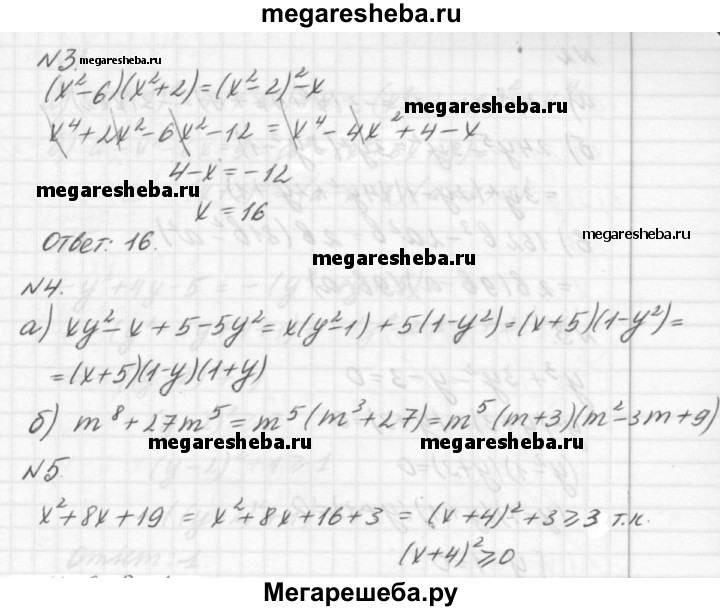 megaresheba.ru
N3. megaresheba.ru
(x²-6)(x²+2)=(x²-2)²-x
megaresheba.ru
x⁴+2x²-6x²-12 = x⁴-4x²+4-x
4-x=-12
megaresheba.ru
x=16
Ответ: 16.
megaresheba.ru
megaresheba.ru
N4.
а) xy²-x+5-5y²=x(y²-1)+5(1-y²)=(x+5)(1-y²)=
=(x+5)(1-y)(1+y)
б) m⁸+27m⁵=m⁵(m³+27)=m⁵(m+3)(m²-3m+9)
megaresheba.ru megaresheba.ru
N5.
x²+8x+19 = x²+8x+16+3 = (x+4)²+3⩾3 т.к.
(x+4)²⩾0
Мегарешеба.ру